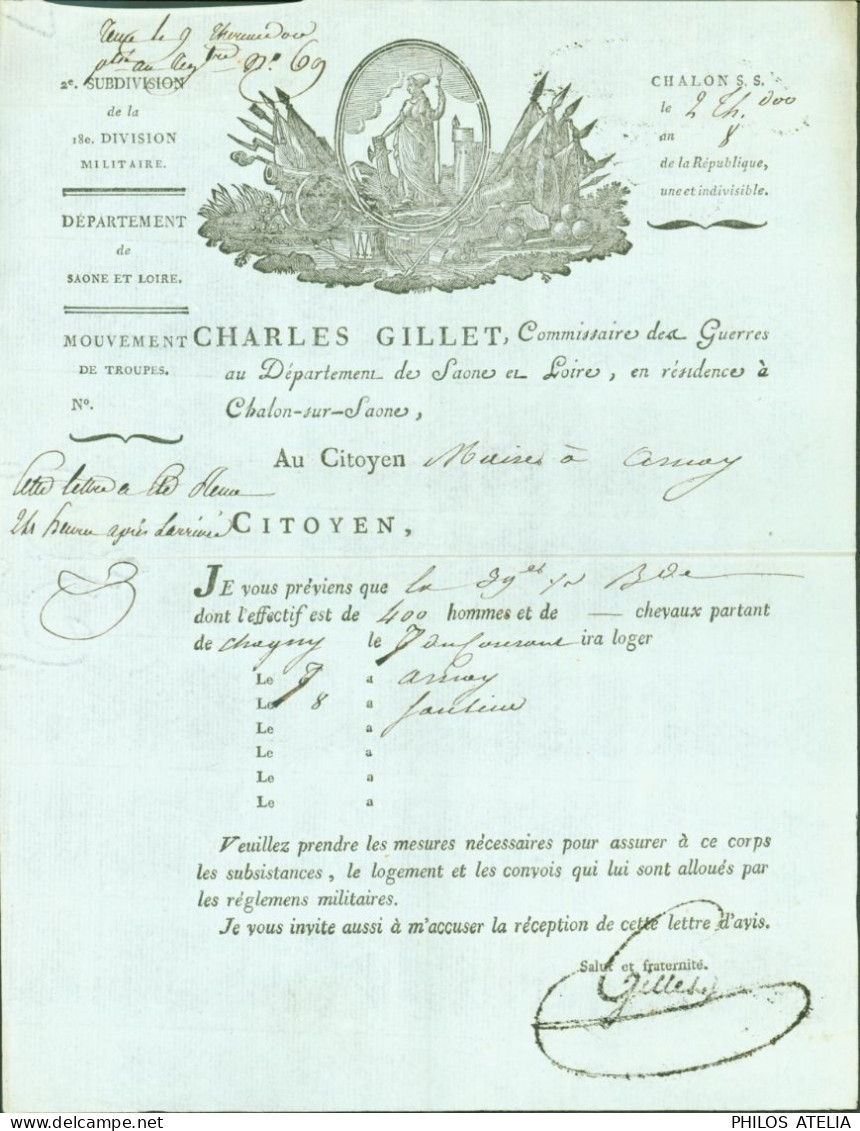 le 9 Thermidor
Nº 69
2e. SUBDIVISION
de la
18e. DIVISION
MILITAIRE.
DÉPARTEMENT
de
SAONE ET LOIRE.
MOUVEMENT
DE TROUPES.
Nº.
CHALON S. S.
le 2 Th.dor
an 8
de la République,
une et indivisible.
CHARLES GILLET, Commissaire des Guerres
au Département de Saone et Loire, en résidence à
Chalon-sur-Saone,
Au Citoyen Maire à arnay
Cette lettre a été
24 heures après larrivée
CITOYEN,
JE vous préviens que la Bde
dont l'effectif est de 400 hommes et de — chevaux partant
de chagny le 7 du Courant ira loger
Le 7 a arnay
Le 8 a
Le a
Le a
Le a
Le a
Veuillez prendre les mesures nécessaires pour assurer à ce corps
les subsistances, le logement et les convois qui lui sont alloués par
les réglemens militaires.
Je vous invite aussi à m'accuser la réception de cette lettre d'avis.
Salut et fraternité.
Gillet
PHILOS ATELIA